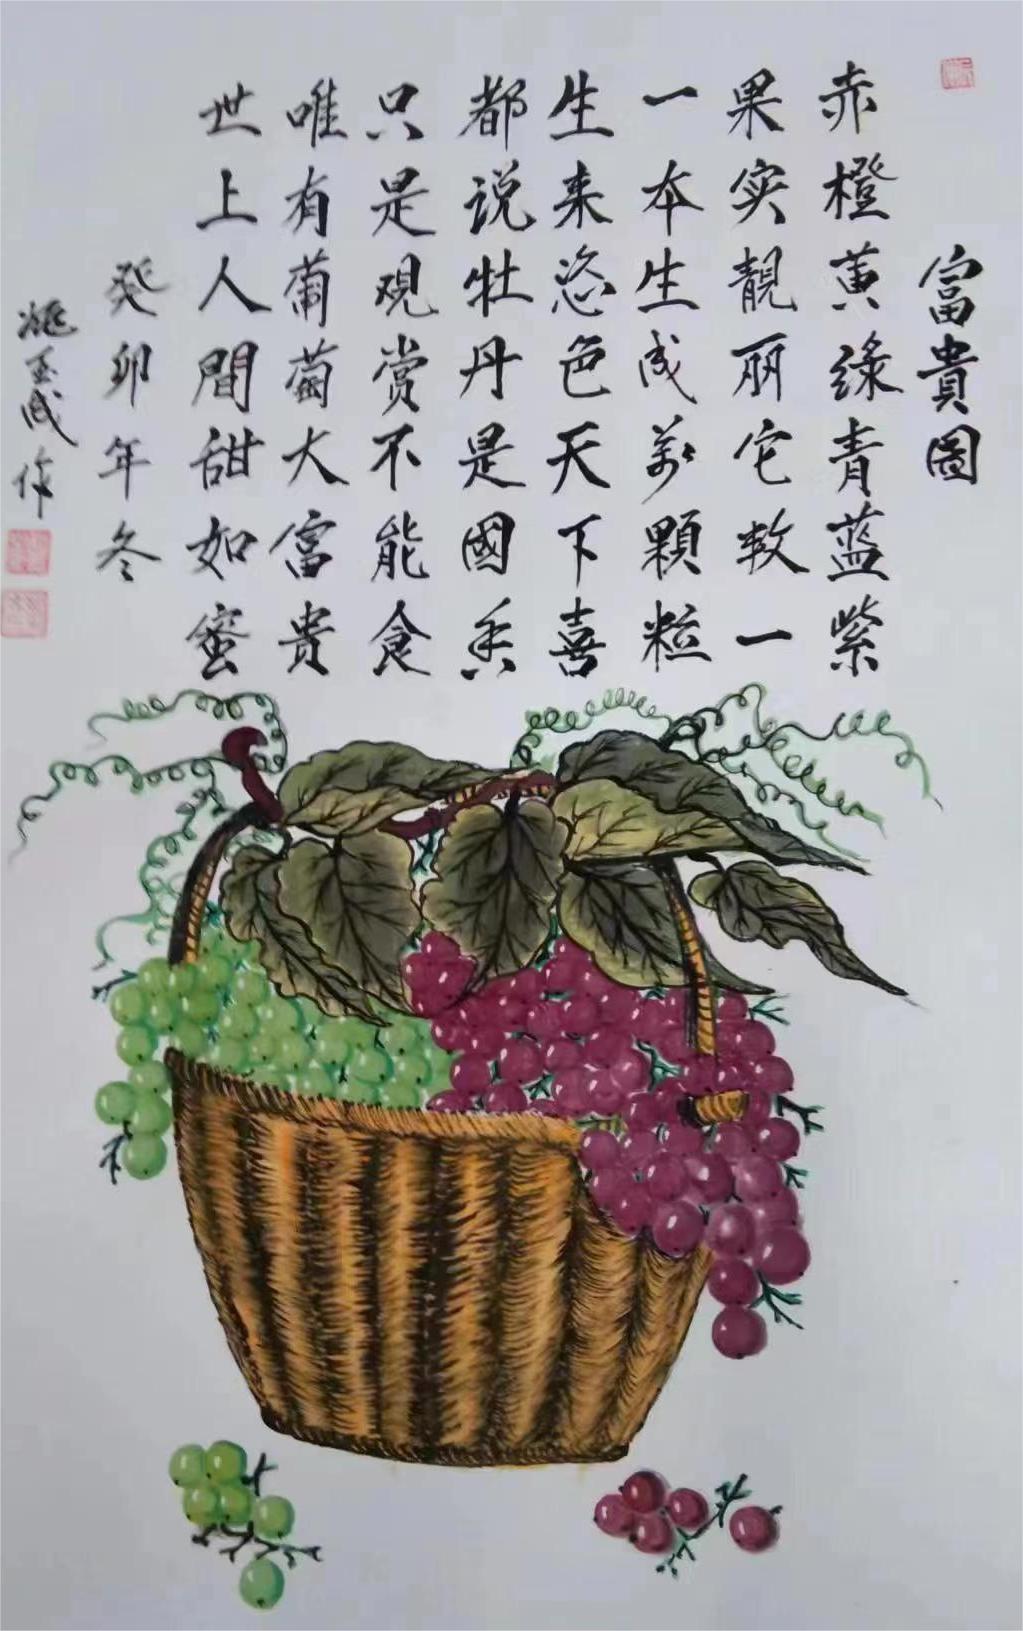 富貴圖
赤橙黄綠青蓝紫
果实靓丽它数一
一本生成万颗粒
生来恣色天下喜
都说牡丹是國香
只是观赏不能食
唯有葡萄大富贵
世上人間甜如蜜
癸卯年冬
玉成作